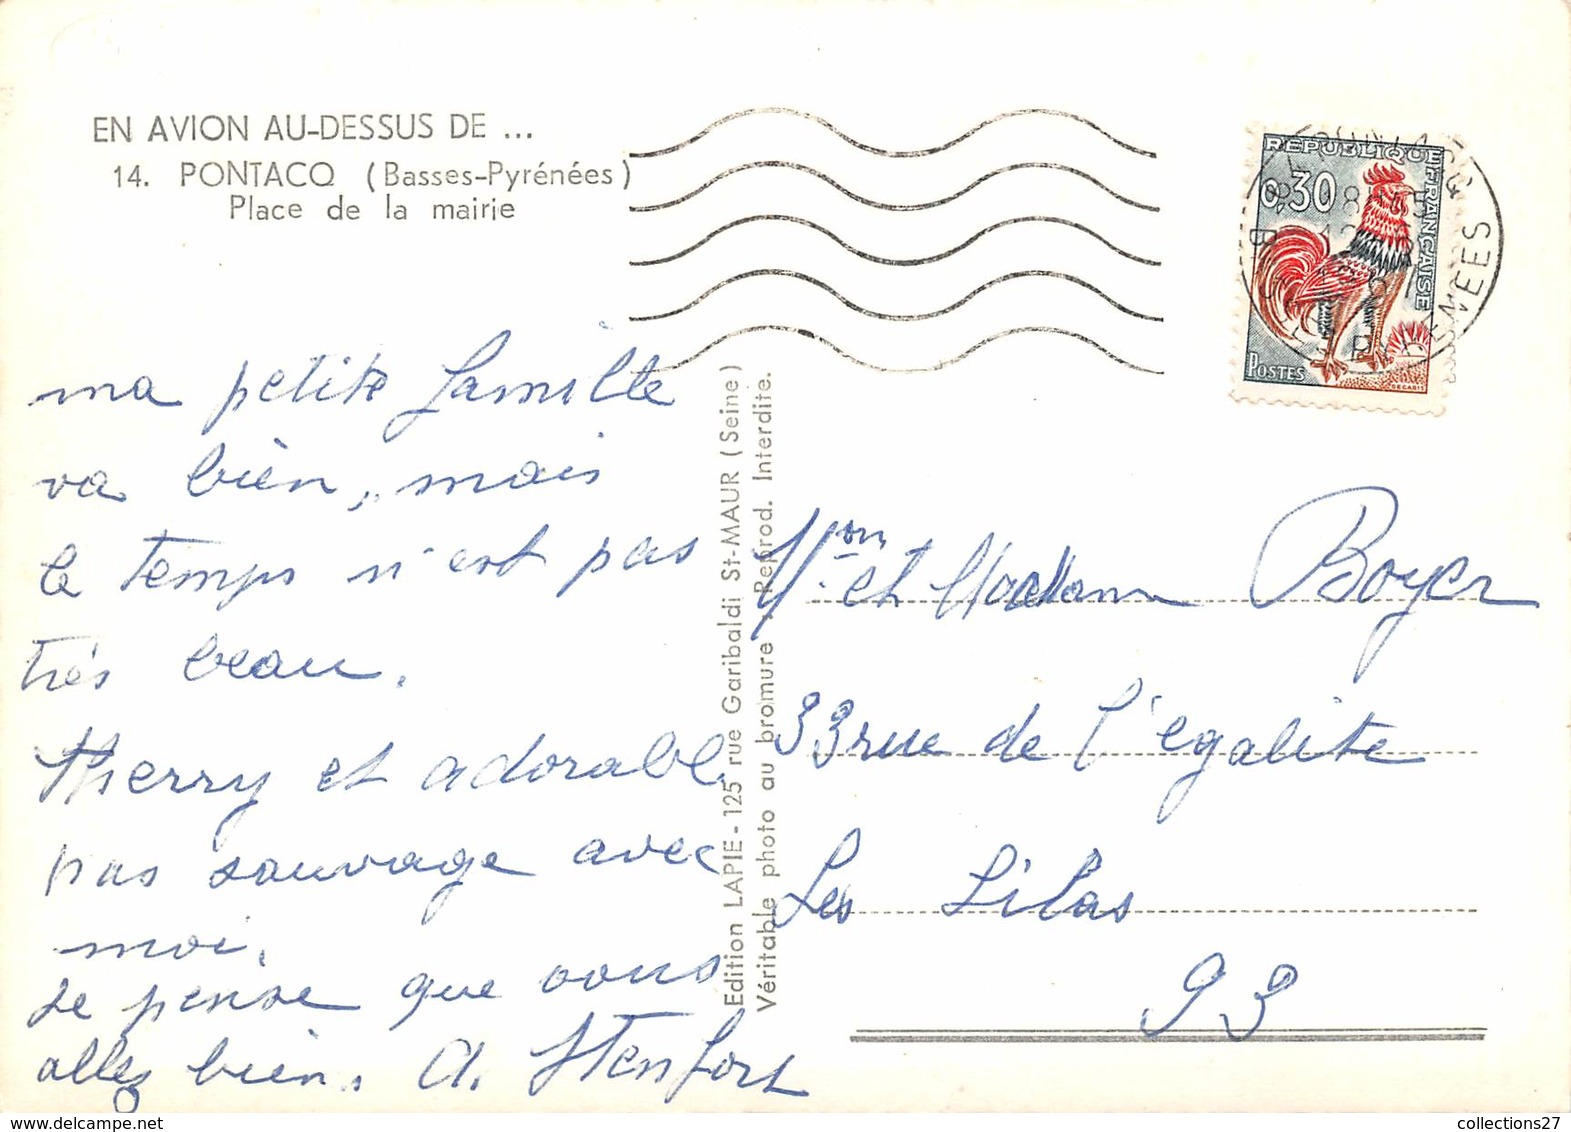 EN AVION AU-DESSUS DE ...
14. PONTACQ (Basses-Pyrénées)
Place de la mairie
RÉPUBLIQUE FRANÇAISE
0,30
POSTES
DECARIS
ma petite famille
va bien, mais
le temps n'est pas
très beau.
Therry et adorable
pas sauvage avec
moi.
Je pense que vous
allez bien. A. Stenfort
Edition LAPIE - 125 rue Garibaldi St-MAUR (Seine)
Véritable photo au bromure . Reprod. Interdite.
Mon et Madam Boyer
33 rue de l'égalite
Les Lilas
93
collections27